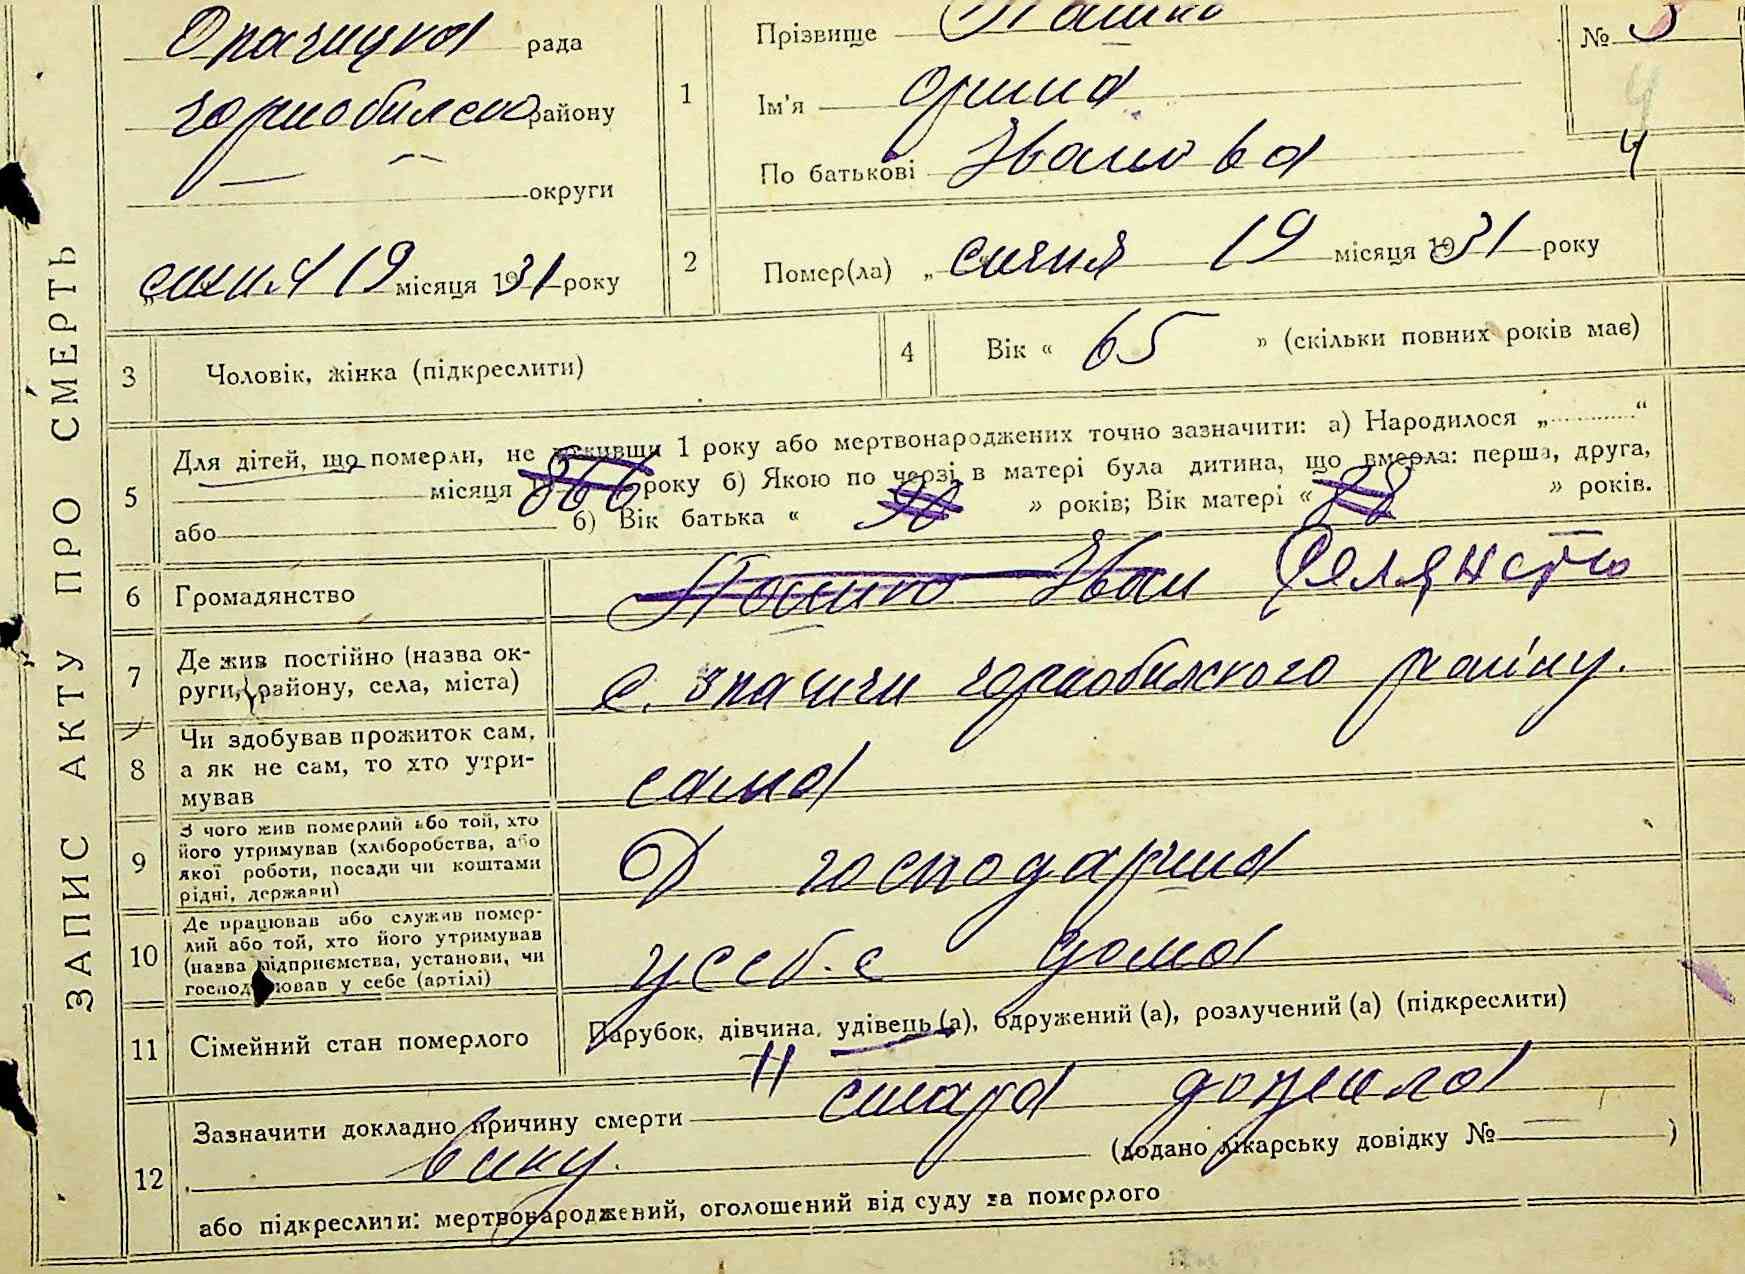 Опачицка рада
чорнобилско району
округи
сичня 19 місяця 1931 року
ЗАПИС АКТУ ПРО СМЕРТЬ
1 Прізвище Пашко
Ім'я Орина
По батькові Іванова
№ 3
4
4
2 Помер(ла) „ сичня 19 місяця 1931 року
3 Чоловік, жінка (підкреслити)
4 Вік « 65 » (скільки повних років має)
5 Для дітей, що померли, не доживши 1 року або мертвонароджених точно зазначити: а) Народилося „ “
місяця 1866 року б) Якою по черзі в матері була дитина, що вмерла: перша, друга,
або б) Вік батька « 90 » років; Вік матері « 88 » років.
6 Громадянство Пашко Іван Селянство
7 Де жив постійно (назва ок-
руги, району, села, міста) с. Опачичи чорнобилского району.
8 Чи здобував прожиток сам,
а як не сам, то хто утри-
мував сама
9 З чого жив померлий або той, хто
його утримував (хліборобства, або
якої роботи, посади чи коштами
рідні, держави) господарша
10 Де працював або служив помер-
лий або той, хто його утримував
(назва підприємства, установи, чи
господарював у себе (артілі) у себ-е дома
11 Сімейний стан померлого Парубок, дівчина, удівець (а), одружений (а), розлучений (а) (підкреслити)
12 Зазначити докладно причину смерти стара дожила
вику. (додано лікарську довідку № )
або підкреслити: мертвонароджений, оголошений від суду за померлого